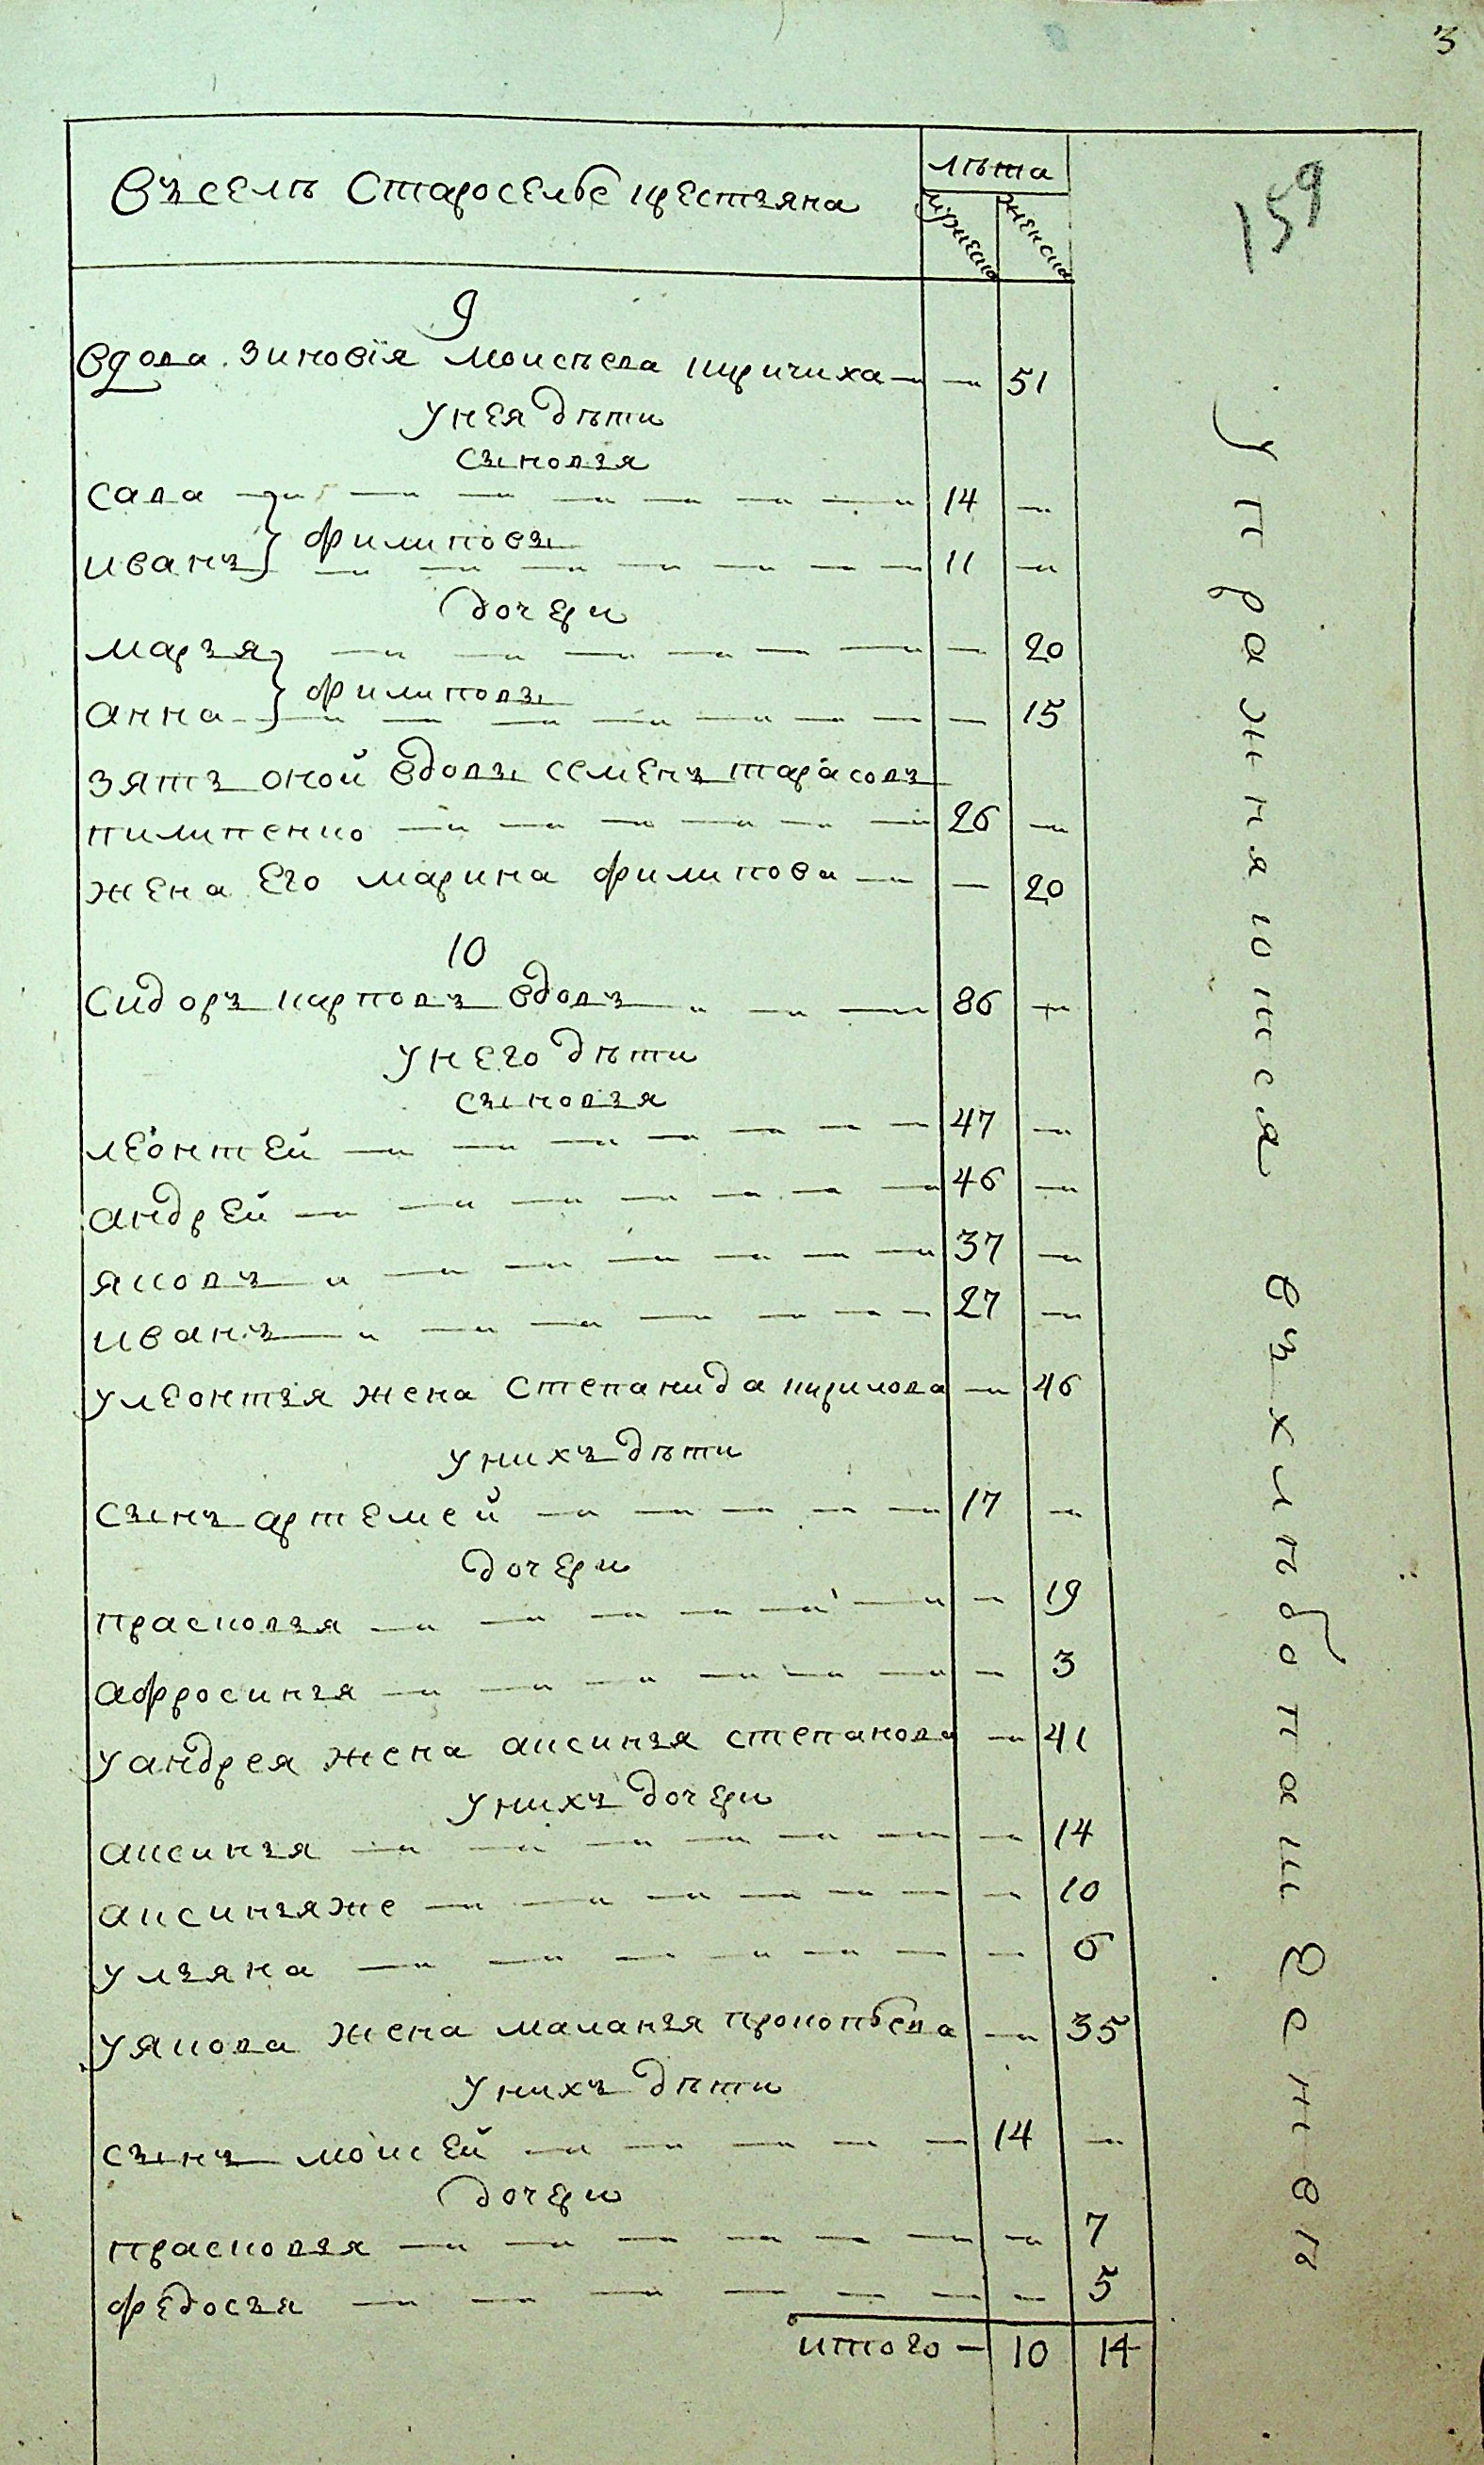 3
159
Въ селѣ Староселье крестьяна
лѣта
мужеска
женска
9
вдова зиновія моисѣева киричиха — — 51
у нея дѣти
сыновья
сава — — — — — — — 14 —
иванъ } филиповы — — — — — — — 11 —
дочери
марья — — — — — — — 20
анна } филиповы — — — — — — — 15
зять оной вдовы семенъ тарасовъ
пилипенко — — — — — — 26 —
жена его марина филипова — — 20
10
Сидоръ карповъ вдовъ — — — 86 —
у него дѣти
сыновья
леонтей — — — — — — — 47 —
андрей — — — — — — — 46 —
яковъ — — — — — — — 37 —
иванъ — — — — — — — 27 —
у леонтья жена степанида кирилова — 46
у нихъ дѣти
сынъ артемей — — — — — 17 —
дочери
прасковья — — — — — — — 19
афросинья — — — — — — — 3
у андрея жена аксинья степанова — 41
у нихъ дочери
аксинья — — — — — — — — 14
аксинья же — — — — — — — 10
ульяна — — — — — — — — 6
у якова жена маланья прокопьева — 35
у нихъ дѣти
сынъ моисей — — — — — 14 —
дочери
прасковья — — — — — — — — 7
федосья — — — — — — — — 5
итого — 10 14
упражняются въ хлебопашествены